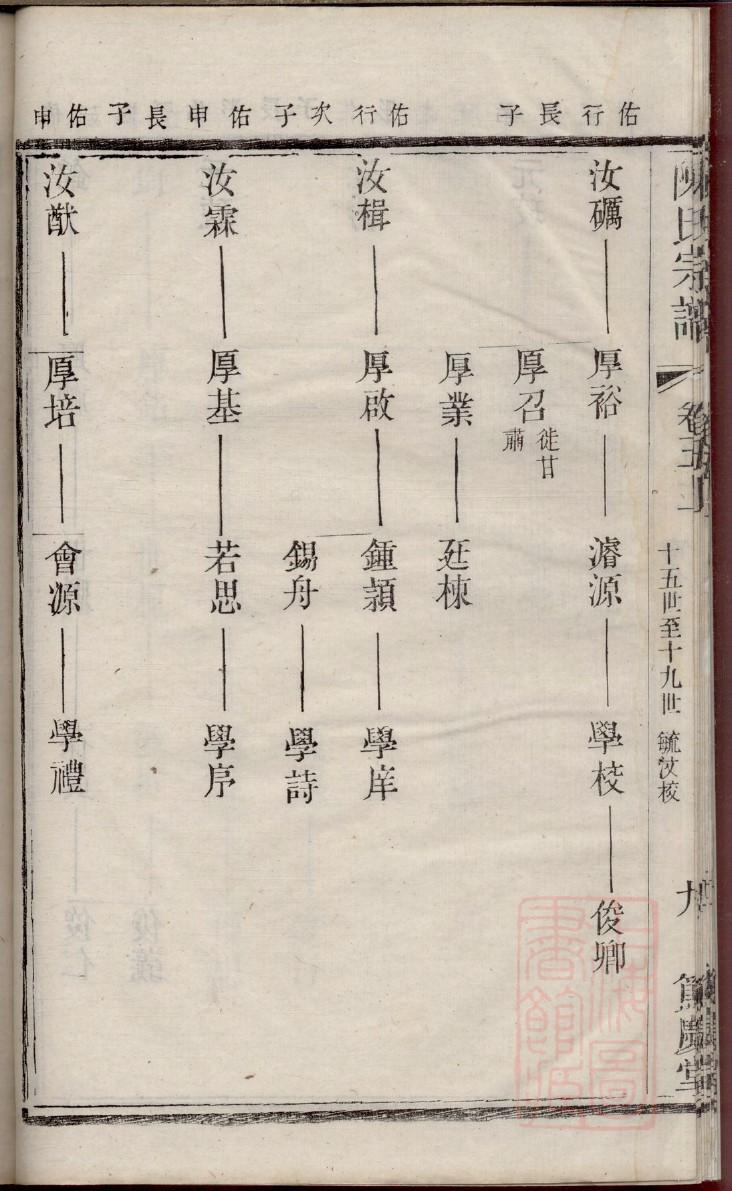 陳氏宗譜
卷五上
十五世至十九世
毓汶校
九
篤慶堂
佑行長子
汝礪 厚裕 濬源 學校 俊卿
厚召 徙甘肅
厚業 廷棟
佑行次子
汝楫 厚啟 鍾穎 學庠
錫舟 學詩
佑申長子
汝霖 厚基 若思 學序
佑申
汝猷 厚培 會源 學禮
上海圖書館藏